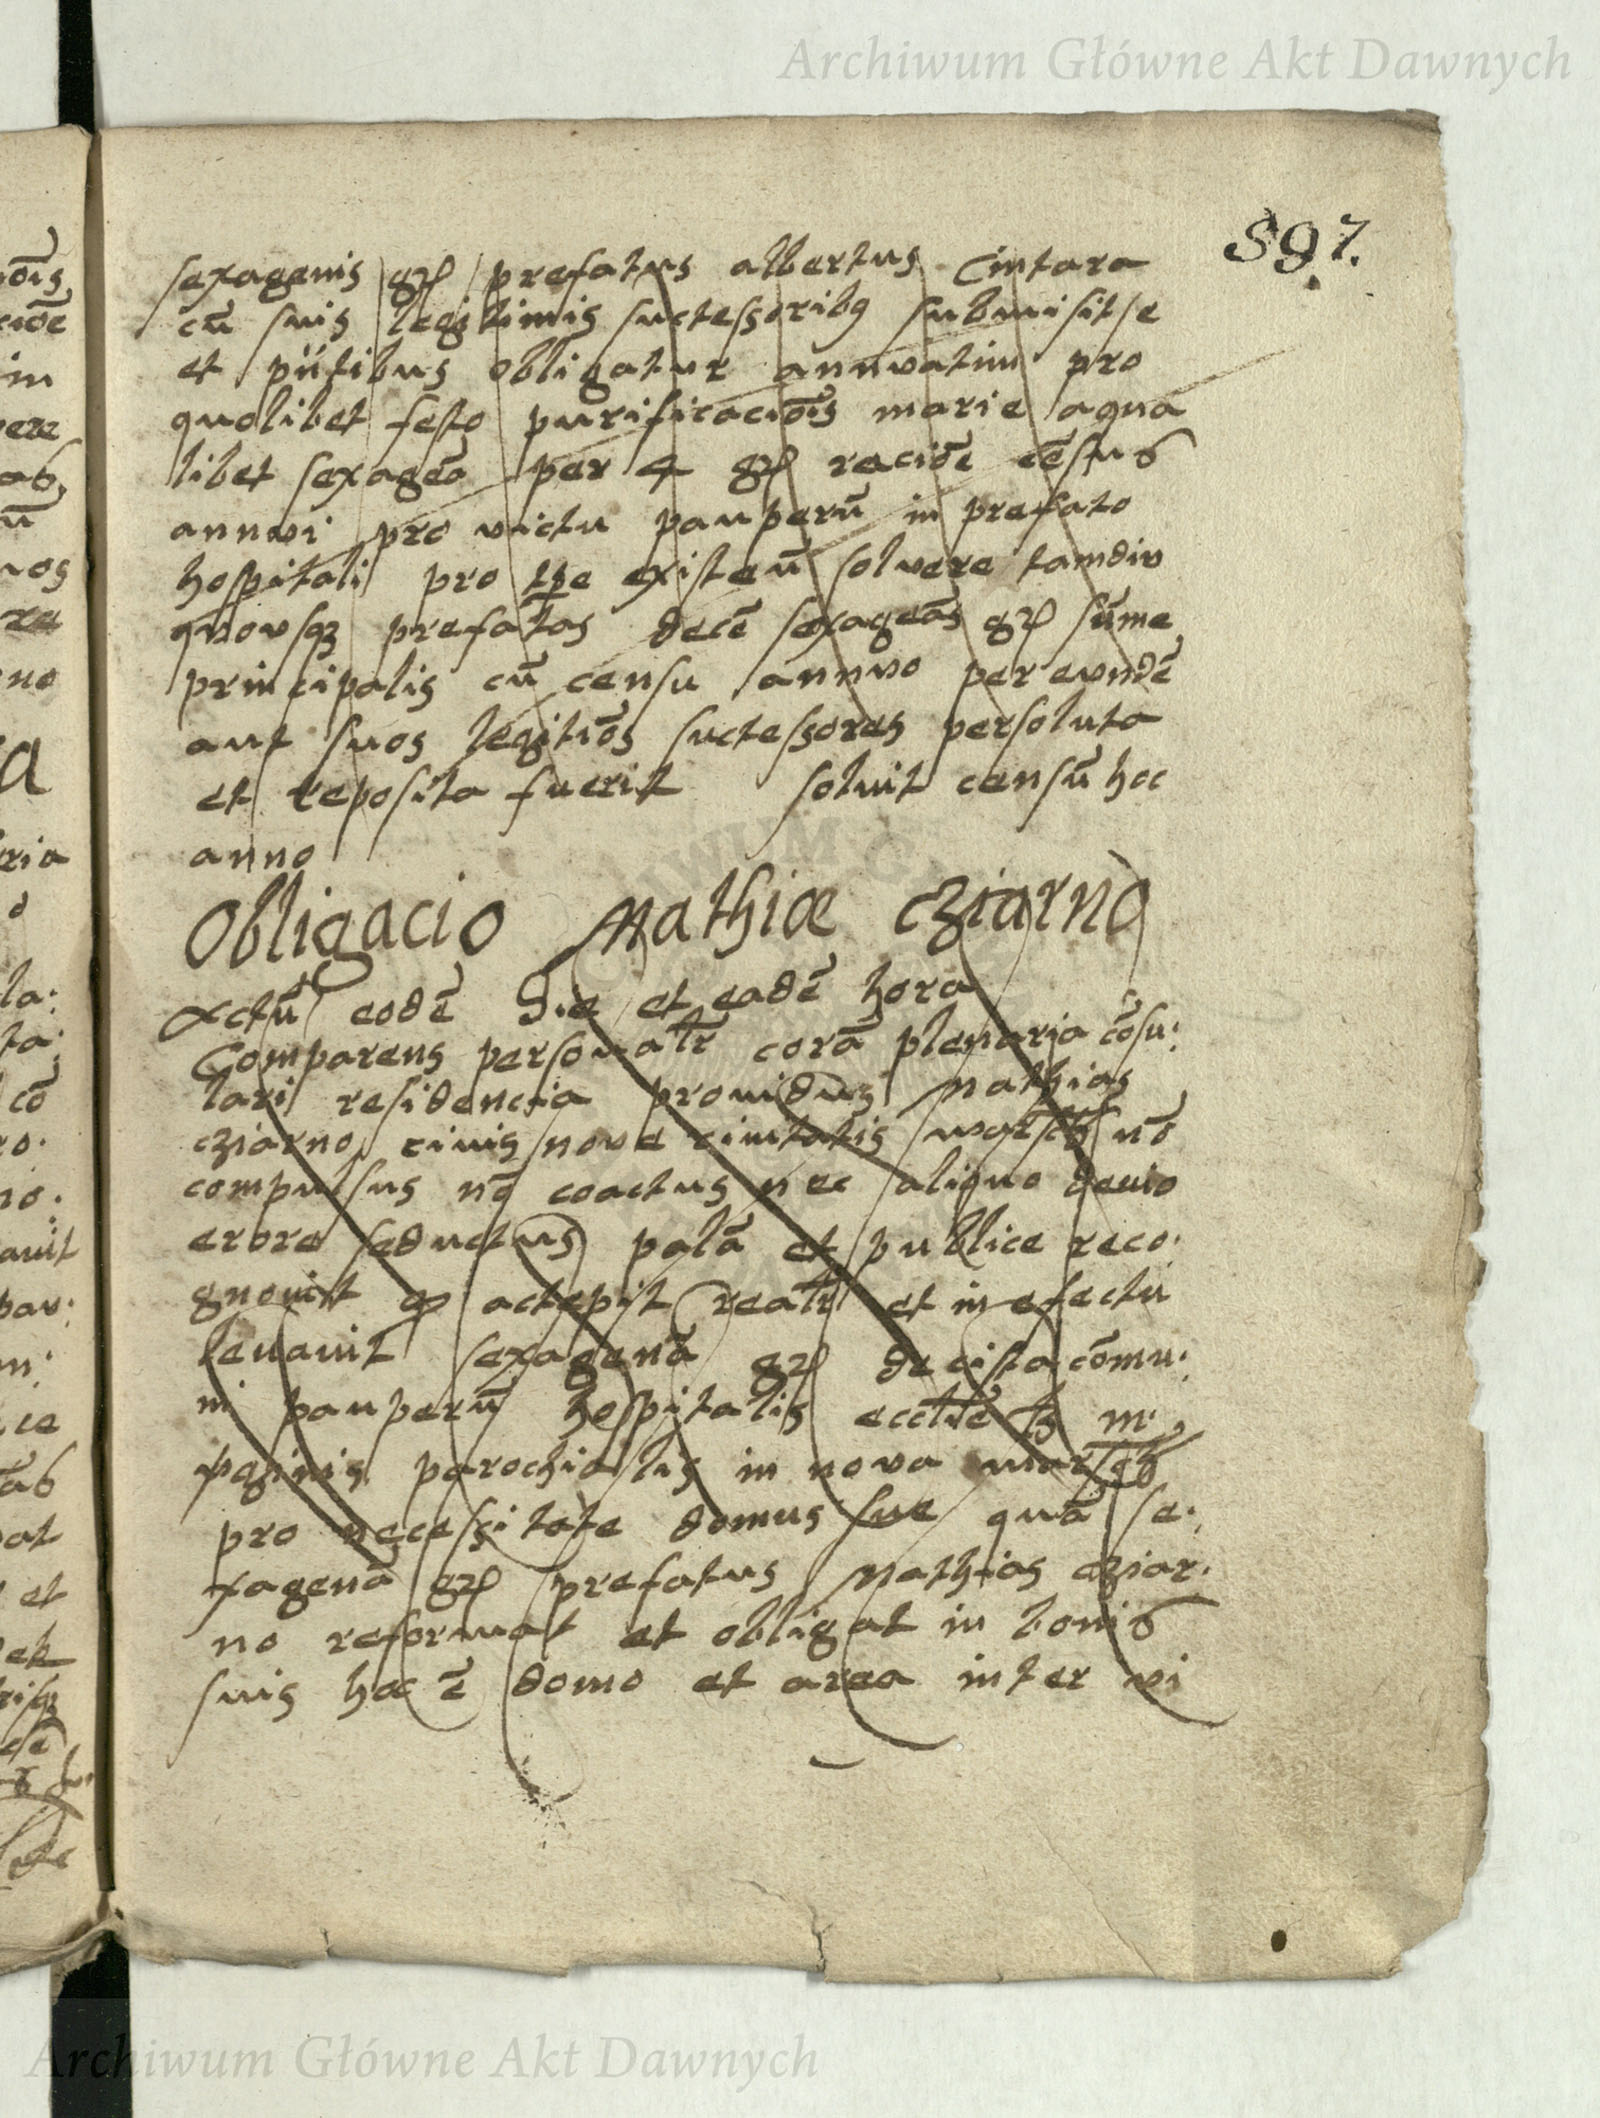 Archiwum Główne Akt Dawnych
897.
sexagenis gr prefatus albertus Cintara
cū suis legitimis suctessoribꝫ submisit se
et pñtibus obligatur annuatim pro
quolibet festo purificaciōis marie a qua
libet sexagēa per 4 gr raciōe cēsus
annui pro victu pauperū in prefato
hospitali pro tpe existeū solvere tamdiu
quousqꝫ prefatas decē sexageās gr sūme
principalis cū censu annuo per eundē
aut suos legitiōs suctessores persoluta
et reposita fuerit soluit censū hoc
anno
Obligacio Mathiæ Cziarno
Actū eodē die et eadē hora
Comparens personalr corā plenaria cōsu:
lari residencia providus Mathias
cziarno civis nove civitatis warsch nō
compulsus nō coactus nec aliquo devio
erore seductus palā et publice reco:
gnovit qꝫ actepit realr et in efectu
levavit sexagenā gr de cista cōmu:
ni pauperū hospitalis eccłie m:
parochialis in nova warsch
pro necessitate domus sue quā se:
xagenā gr prefatus Mathias cziar:
no reformat et obligat in bonis
suis hoc ē domo et area inter vi
Archiwum Główne Akt Dawnych